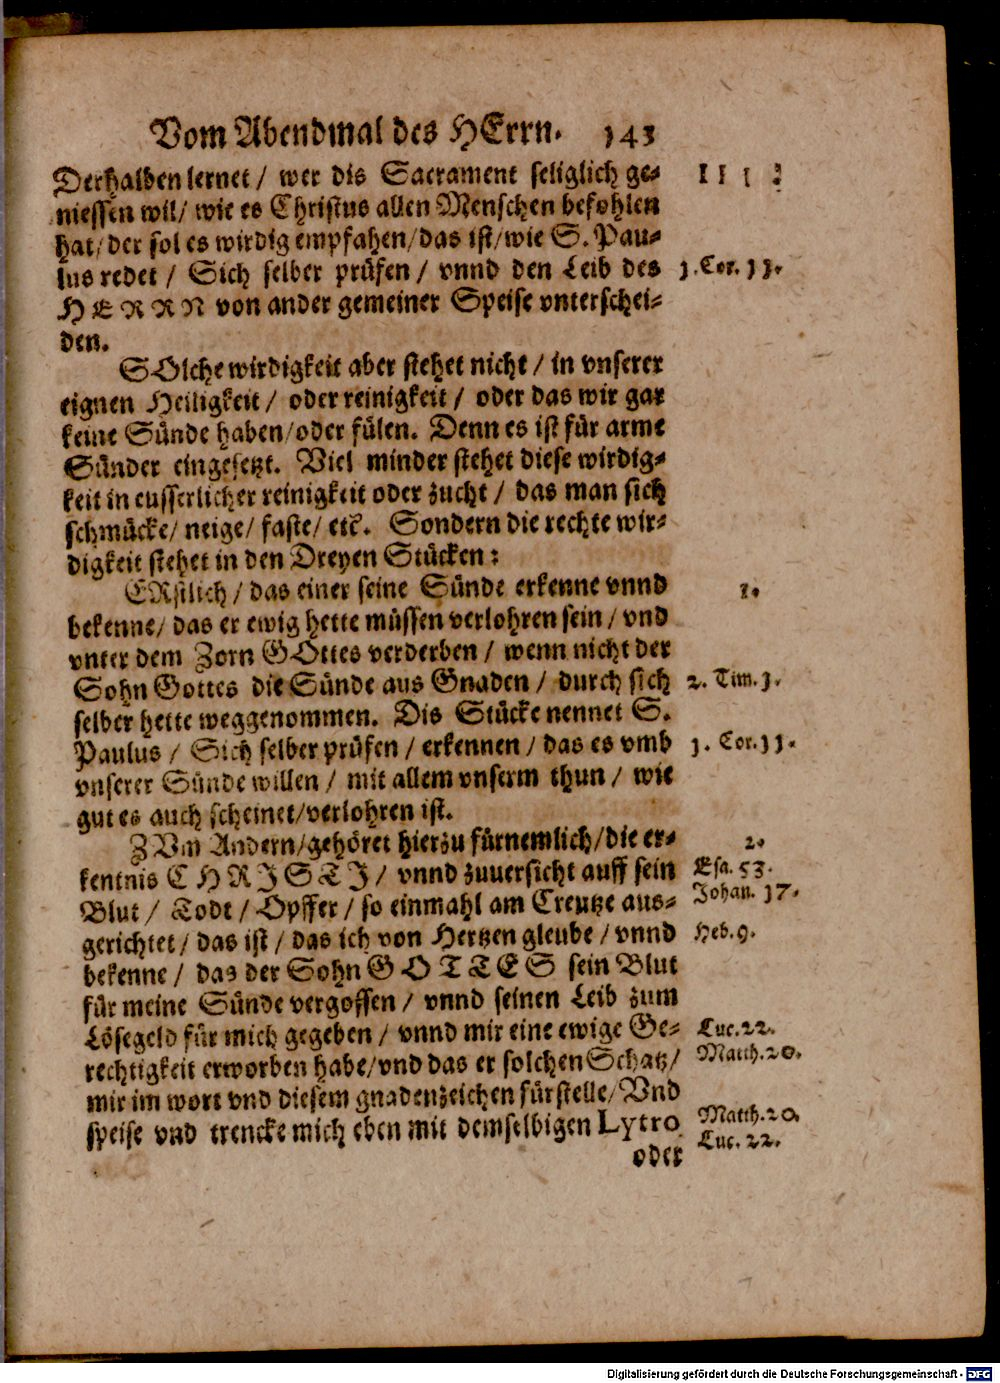 Vom Abendmal des HErrn. 143
Derhalben lernet / wer dis Sacrament seliglich ge-
niessen wil / wie es Christus allen Menschen befohlen
hat / der sol es wirdig empfahen / das ist / wie S. Pau-
lus redet / Sich selber prüfen / vnnd den Leib des
1. Cor. 11.
HERRN von ander gemeiner Speise vnterschei-
den.
SOlche wirdigkeit aber stehet nicht / in vnserer
eignen Heiligkeit / oder reinigkeit / oder das wir gar
keine Sünde haben / oder fülen. Denn es ist für arme
Sünder eingesetzt. Viel minder stehet diese wirdig-
keit in eusserlicher reinigkeit oder zucht / das man sich
schmücke / neige / faste / etc. Sondern die rechte wir-
digkeit stehet in den Dreyen Stücken:
ERstlich / das einer seine Sünde erkenne vnnd
1.
bekenne / das er ewig hette müssen verlohren sein / vnd
vnter dem Zorn GOttes verderben / wenn nicht der
Sohn Gottes die Sünde aus Gnaden / durch sich
2. Tim. 1.
selber hette weggenommen. Dis Stücke nennet S.
Paulus / Sich selber prüfen / erkennen / das es vmb
1. Cor. 11.
vnserer Sünde willen / mit allem vnserm thun / wie
gut es auch scheinet / verlohren ist.
ZVm Andern / gehöret hierzu fürnemlich / die er-
2.
kentnis CHRISTI / vnnd zuuersicht auff sein
Esa. 53.
Blut / Todt / Opffer / so einmahl am Creutze aus-
Johan. 17.
gerichtet / das ist / das ich von Hertzen gleube / vnnd
Heb. 9.
bekenne / das der Sohn GOTTES sein Blut
für meine Sünde vergossen / vnnd seinen Leib zum
Lösegeld für mich gegeben / vnnd mir eine ewige Ge-
Luc. 22.
rechtigkeit erworben habe / vnd das er solchen Schatz /
Matth. 20.
mir im wort vnd diesem gnadenzeichen fürstelle / Vnd
speise vnd trencke mich eben mit demselbigen Lytro
Matth. 20.
Luc. 22.
oder
Digitalisierung gefördert durch die Deutsche Forschungsgemeinschaft - DFG